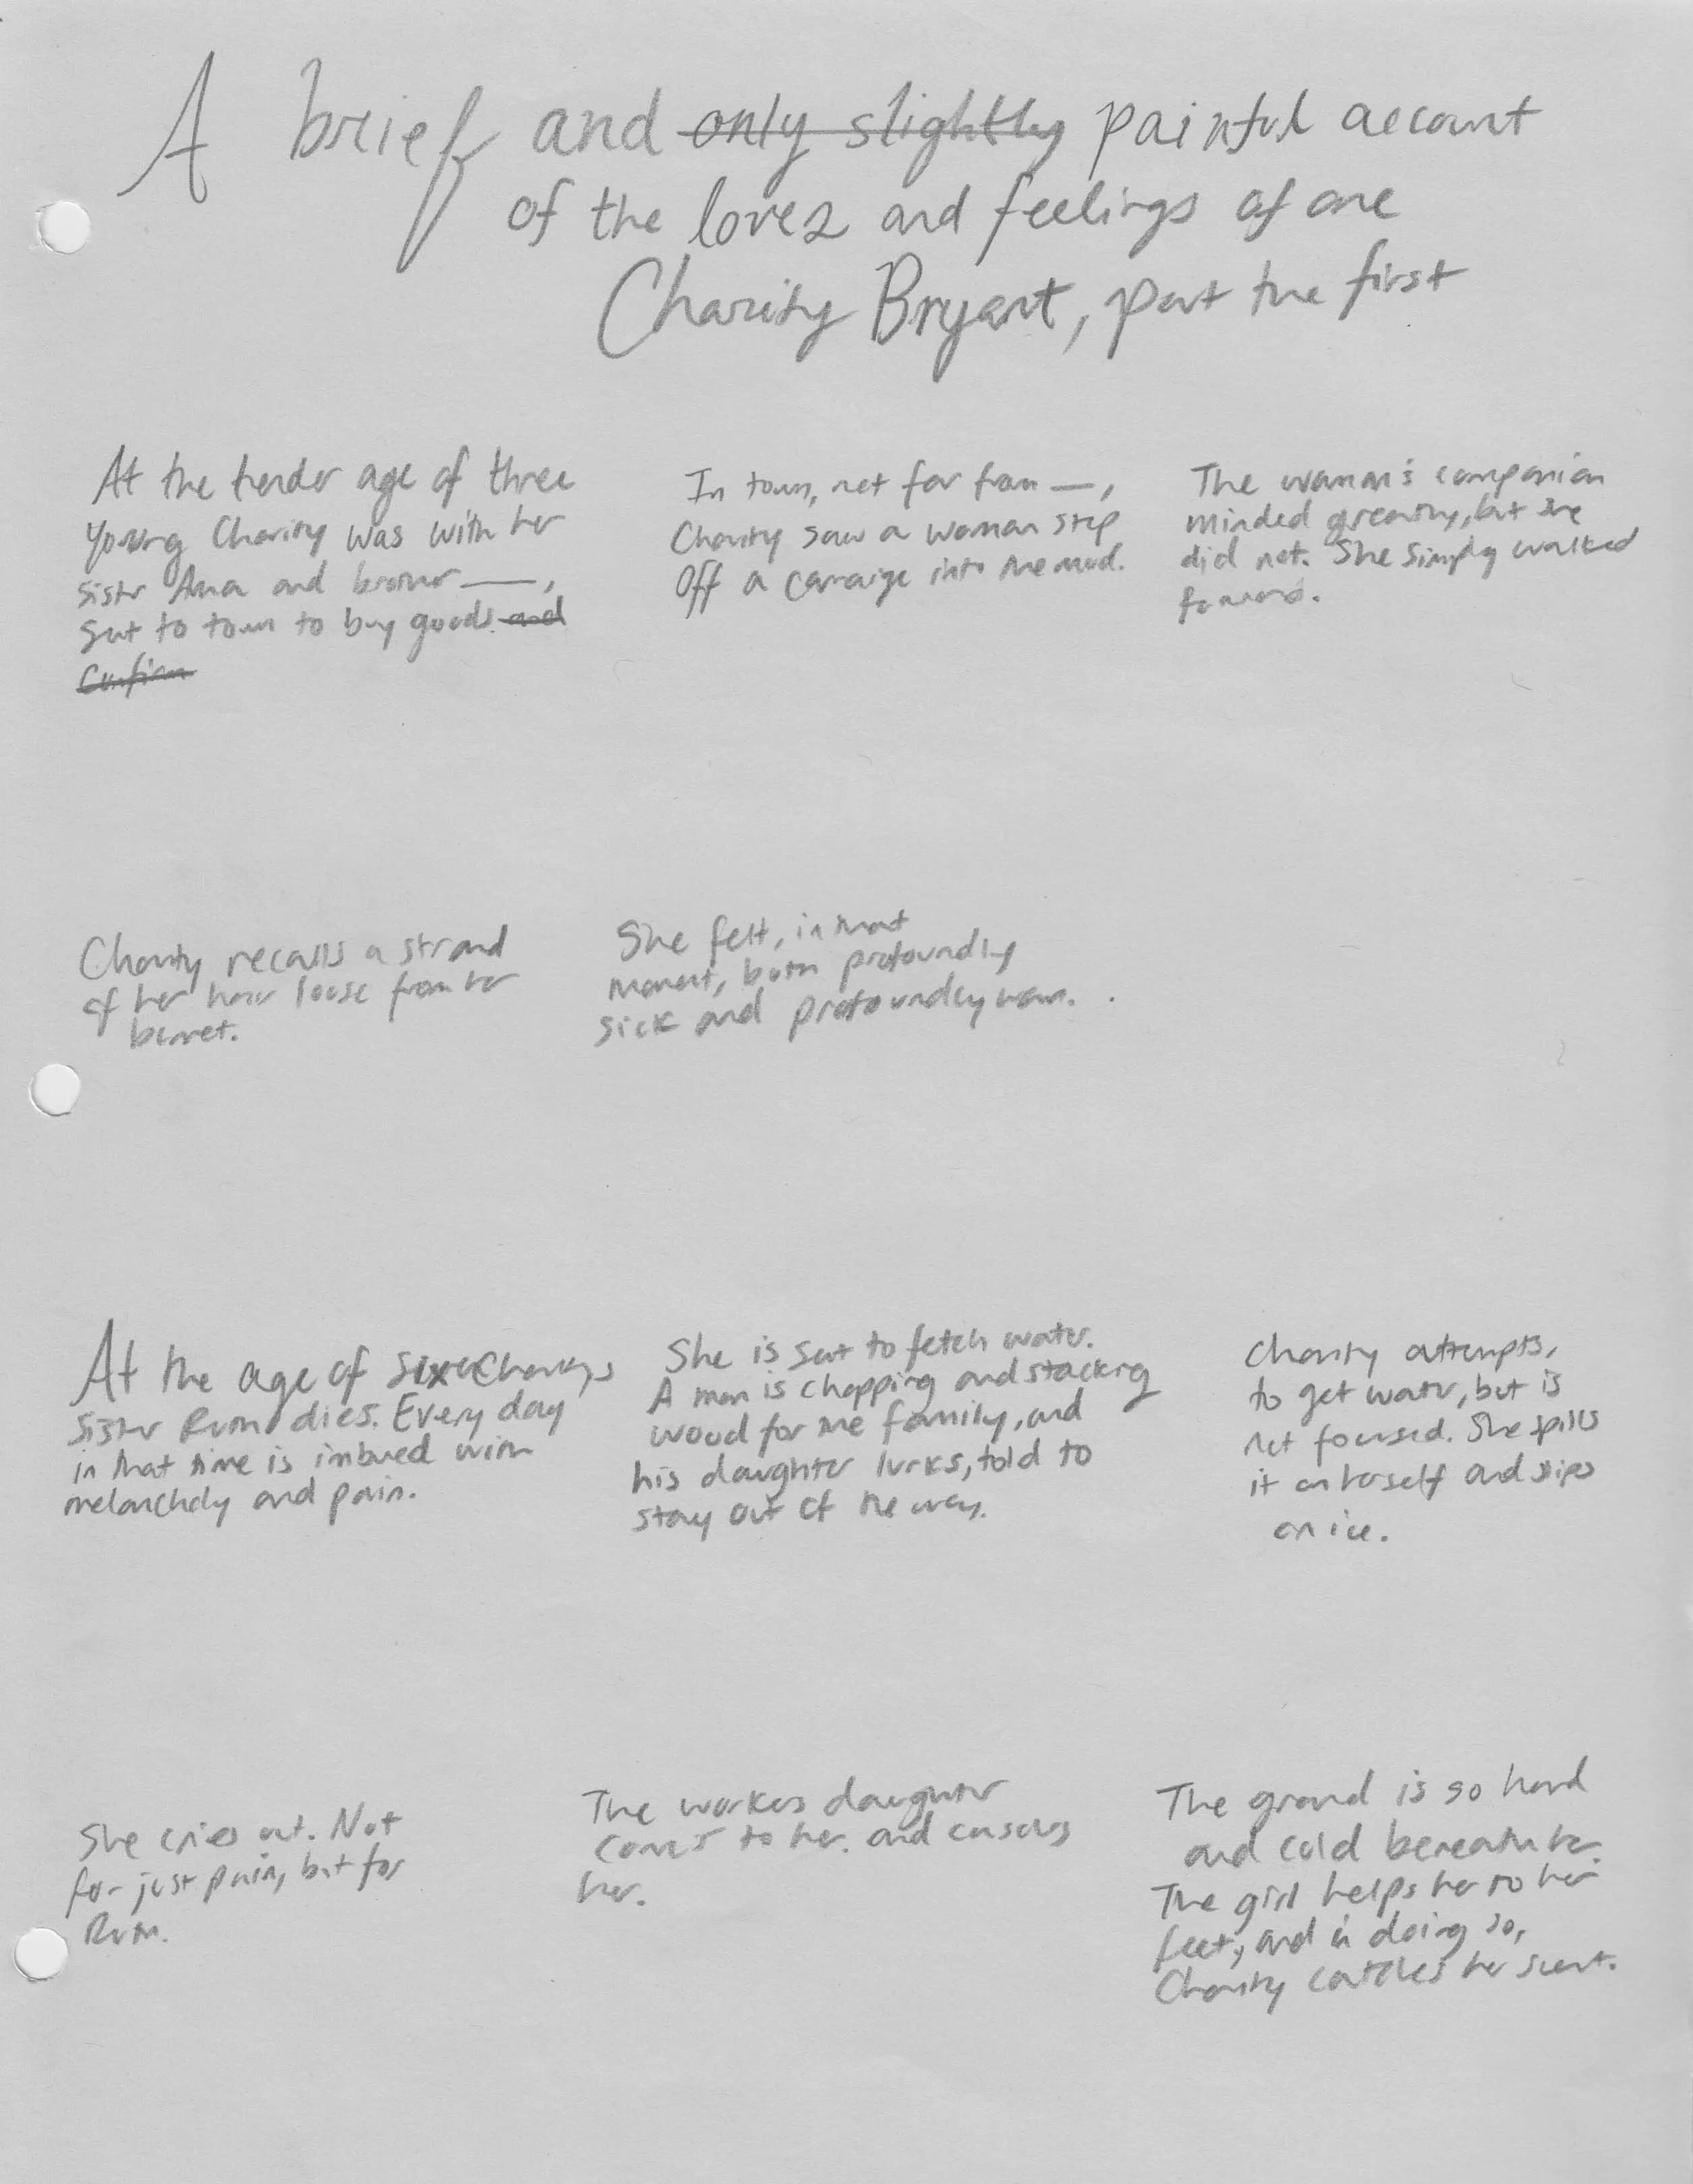 A brief and only slightly painful account
of the loves and feelings of one
Charity Bryant, part the first
At the tender age of three
young Charity was with her
sister Anna and brother —,
sent to town to buy goods. and
Confirm
In town, not far from —,
Charity saw a woman step
off a carraige into the mud.
The woman's companion
minded greatly, but she
did not. She simply walked
forward.
Charity recalls a strand
of her hair loose from her
bonnet.
She felt, in that
moment, both profoundly
sick and profoundly warm.
At the age of six Charity's
sister Ruth dies. Every day
in that time is imbued with
melancholy and pain.
She is sent to fetch water.
A man is chopping and stacking
wood for the family, and
his daughter lurks, told to
stay out of the way.
Charity attempts,
to get water, but is
not focused. She spills
it on herself and slips
on ice.
She cries out. Not
for just pain, but for
Ruth.
The workers daughter
comes to her. and consoles
her.
The ground is so hard
and cold beneath her.
The girl helps her to her
feet, and in doing so,
Charity catches her scent.